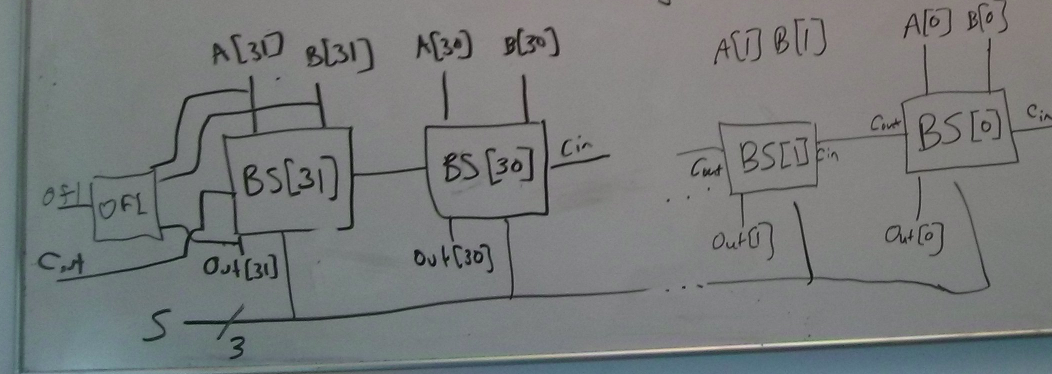 A[31] B[31] A[30] B[30] A[1] B[1] A[0] B[0]
BS[31] BS[30] Cin Cout BS[1] Cin Cout BS[0] Cin
Ofl OFL
Cout Out[31] Out[30] Out[1] Out[0]
...
S 3 ...